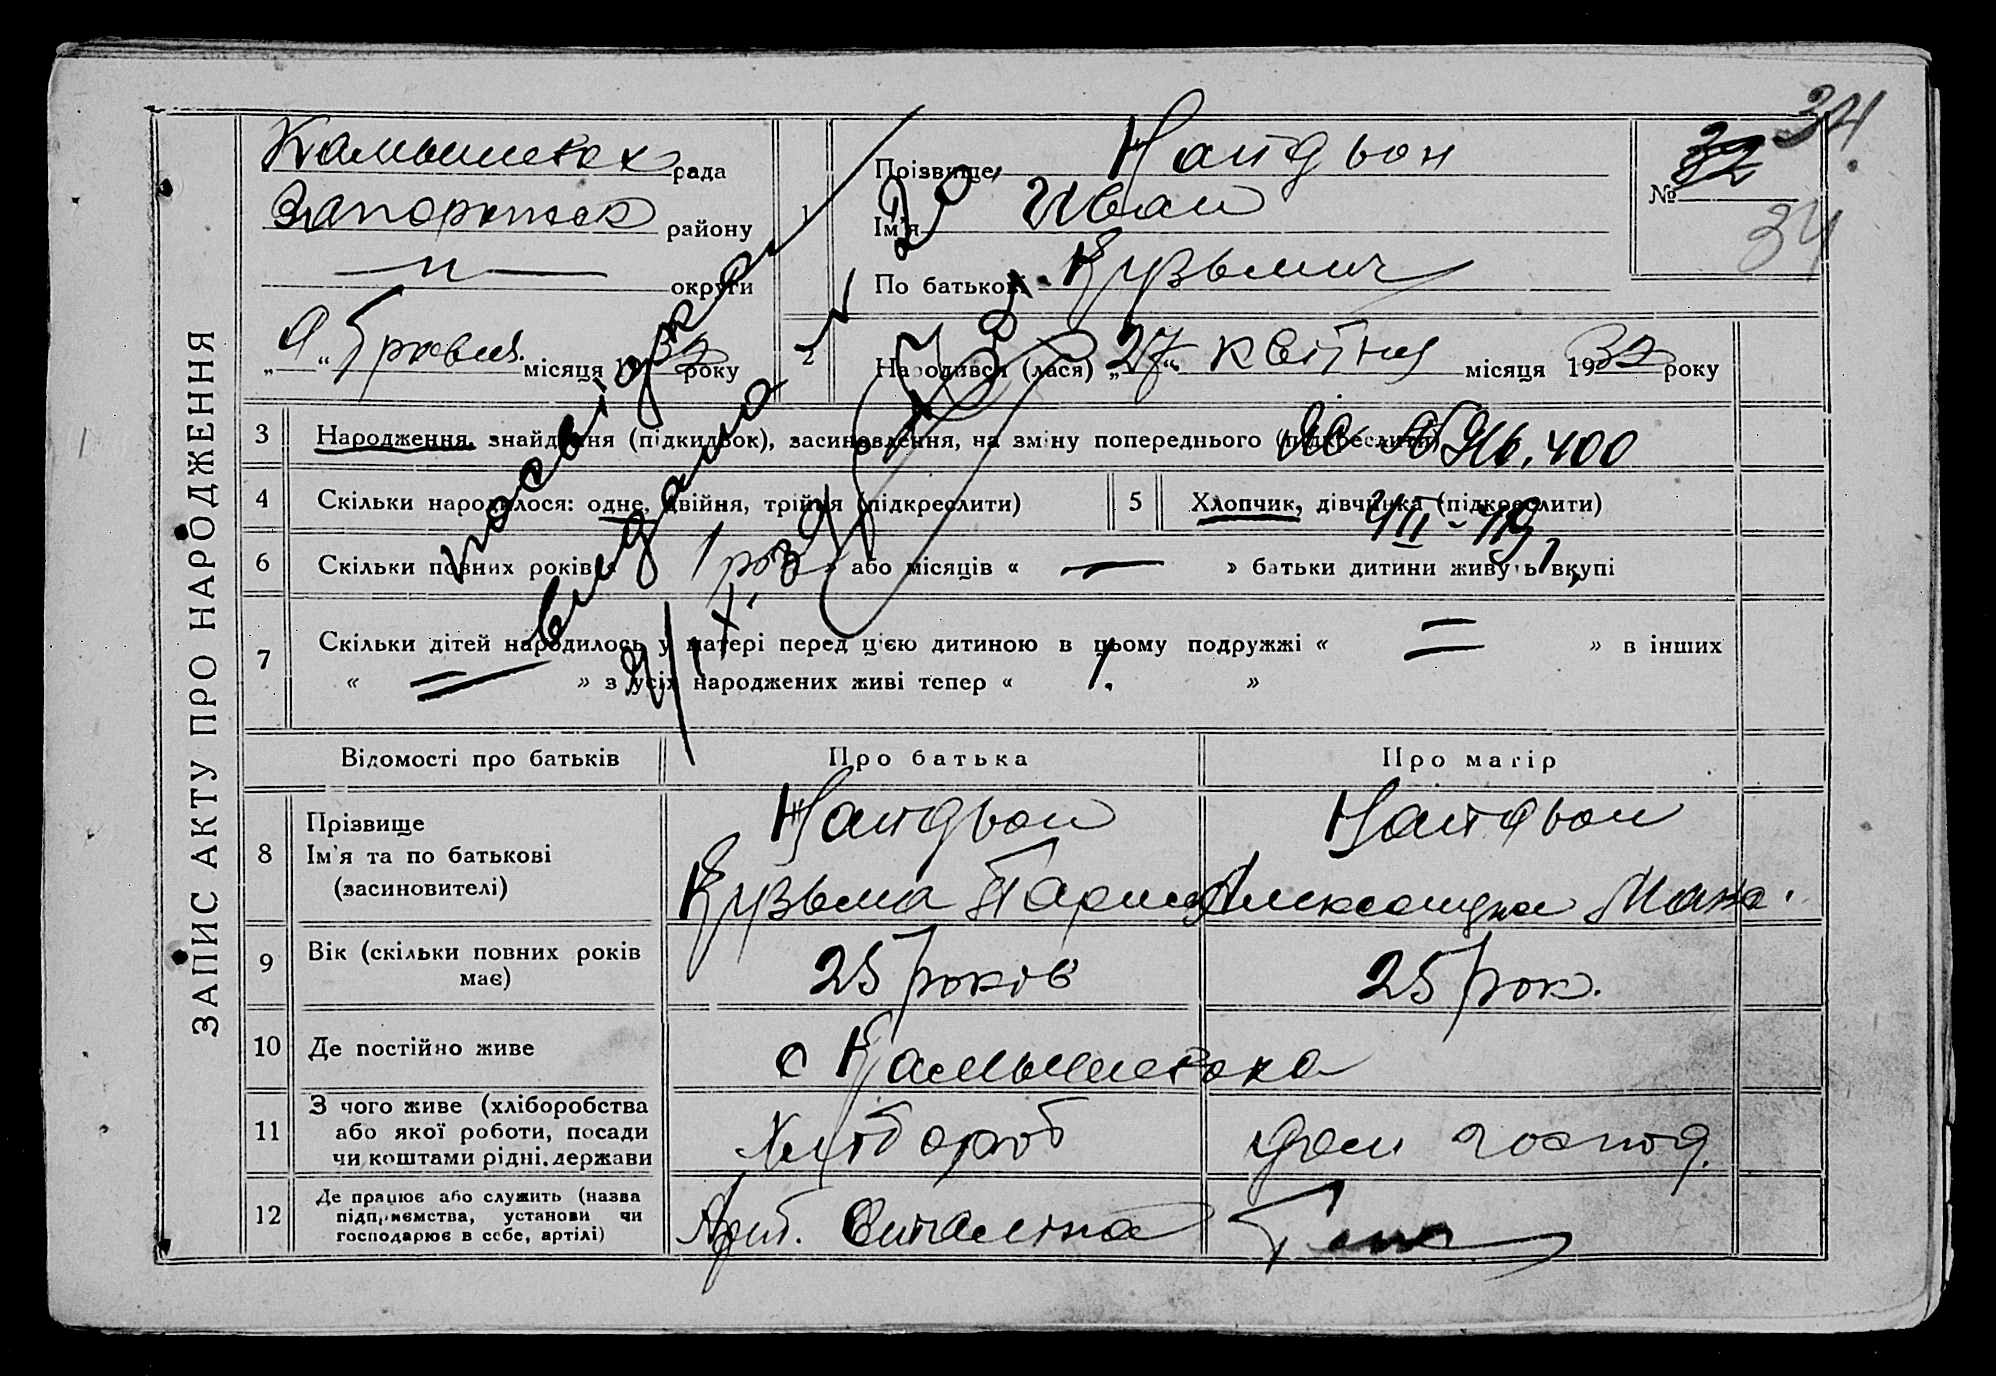 ЗАПИС АКТУ ПРО НАРОДЖЕННЯ
рада
району
— „ —
округи
місяця 1932 року
1
Прізвище Найдьон
Ім'я Иван
По батькові Кузьмич
34
№ 32
34
2
Народився (лася) „27“ квітня місяця 1932 року
3 Народження, знайдення (підкидьок), засиновлення, на зміну попереднього (підкреслити)
4 Скільки народилося: одне, двійня, трійня (підкреслити)
5 Хлопчик, дівчинка (підкреслити)
6 Скільки повних років « 1 » або місяців « — » батьки дитини живуть вкупі
7 Скільки дітей народилось у матері перед цією дитиною в цьому подружжі « = » в інших
« = » з усіх народжених живі тепер « 1. »
посвідка
видана
Відомості про батьків
Про батька
Про матір
8 Прізвище
Ім'я та по батькові
(засиновителі)
Найдьон
Кузьма
Найдьон
Александра
9 Вік (скільки повних років
має)
25 років
25 рок.
10 Де постійно живе
с Камышеваха
11 З чого живе (хліборобства
або якої роботи, посади
чи коштами рідні, держави
Хлібороб
дом господ.
12 Де працює або служить (назва
підприємства, установи чи
господарює в себе, артілі)
Арт.